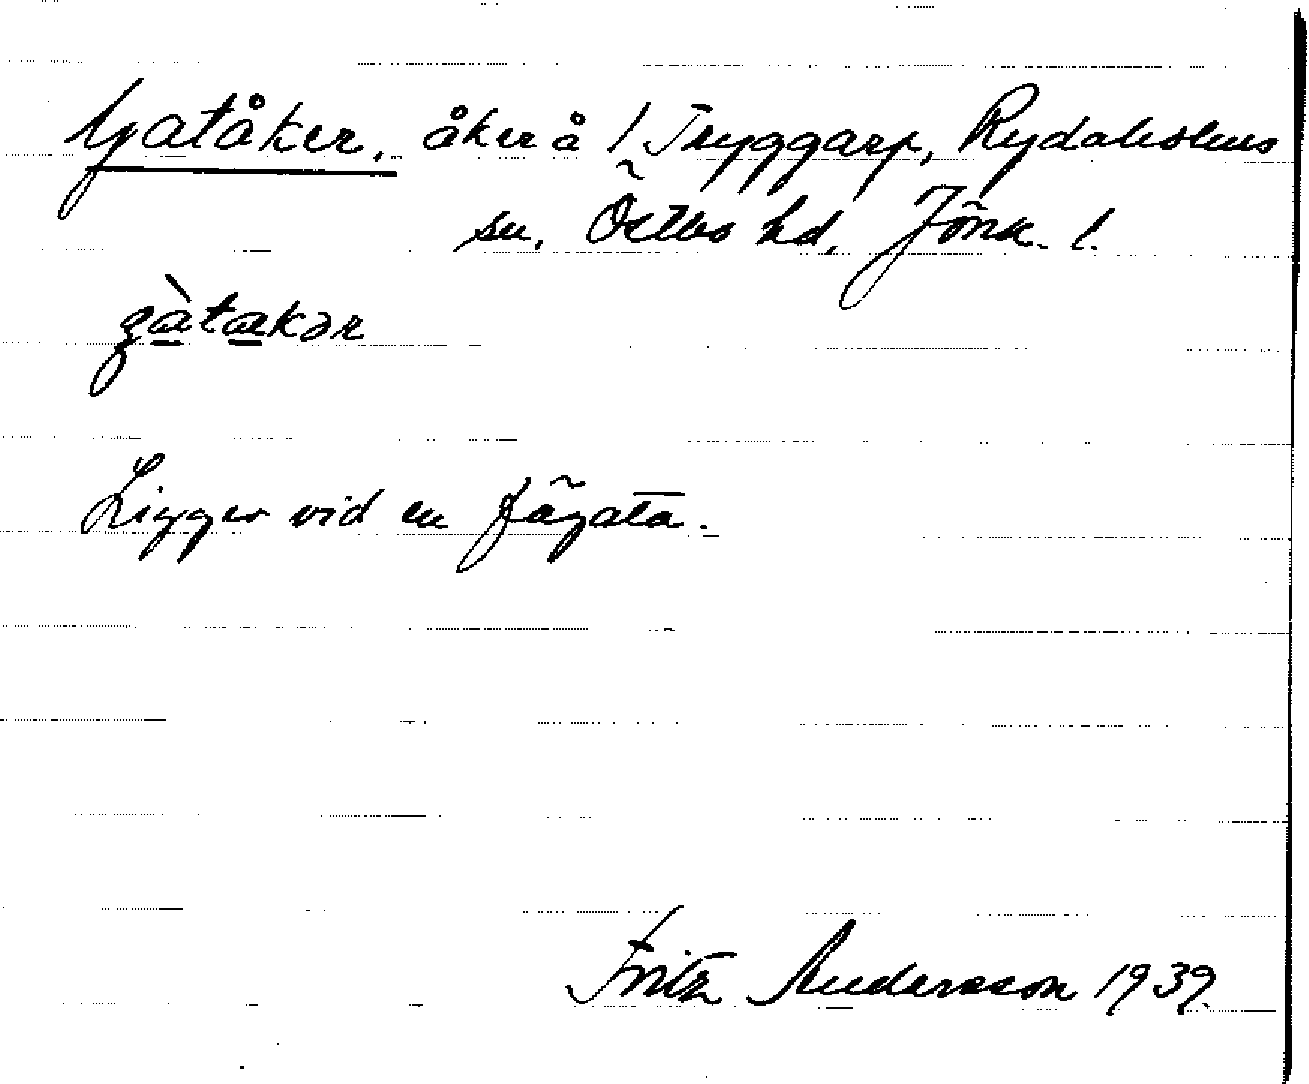 Gatåker, åker å 1 Tryggarp, Rydaholms
sn, Östbo hd, Jönk. l.
gàtakər
Ligger vid en fägata.
Fritz Andersson 1939.